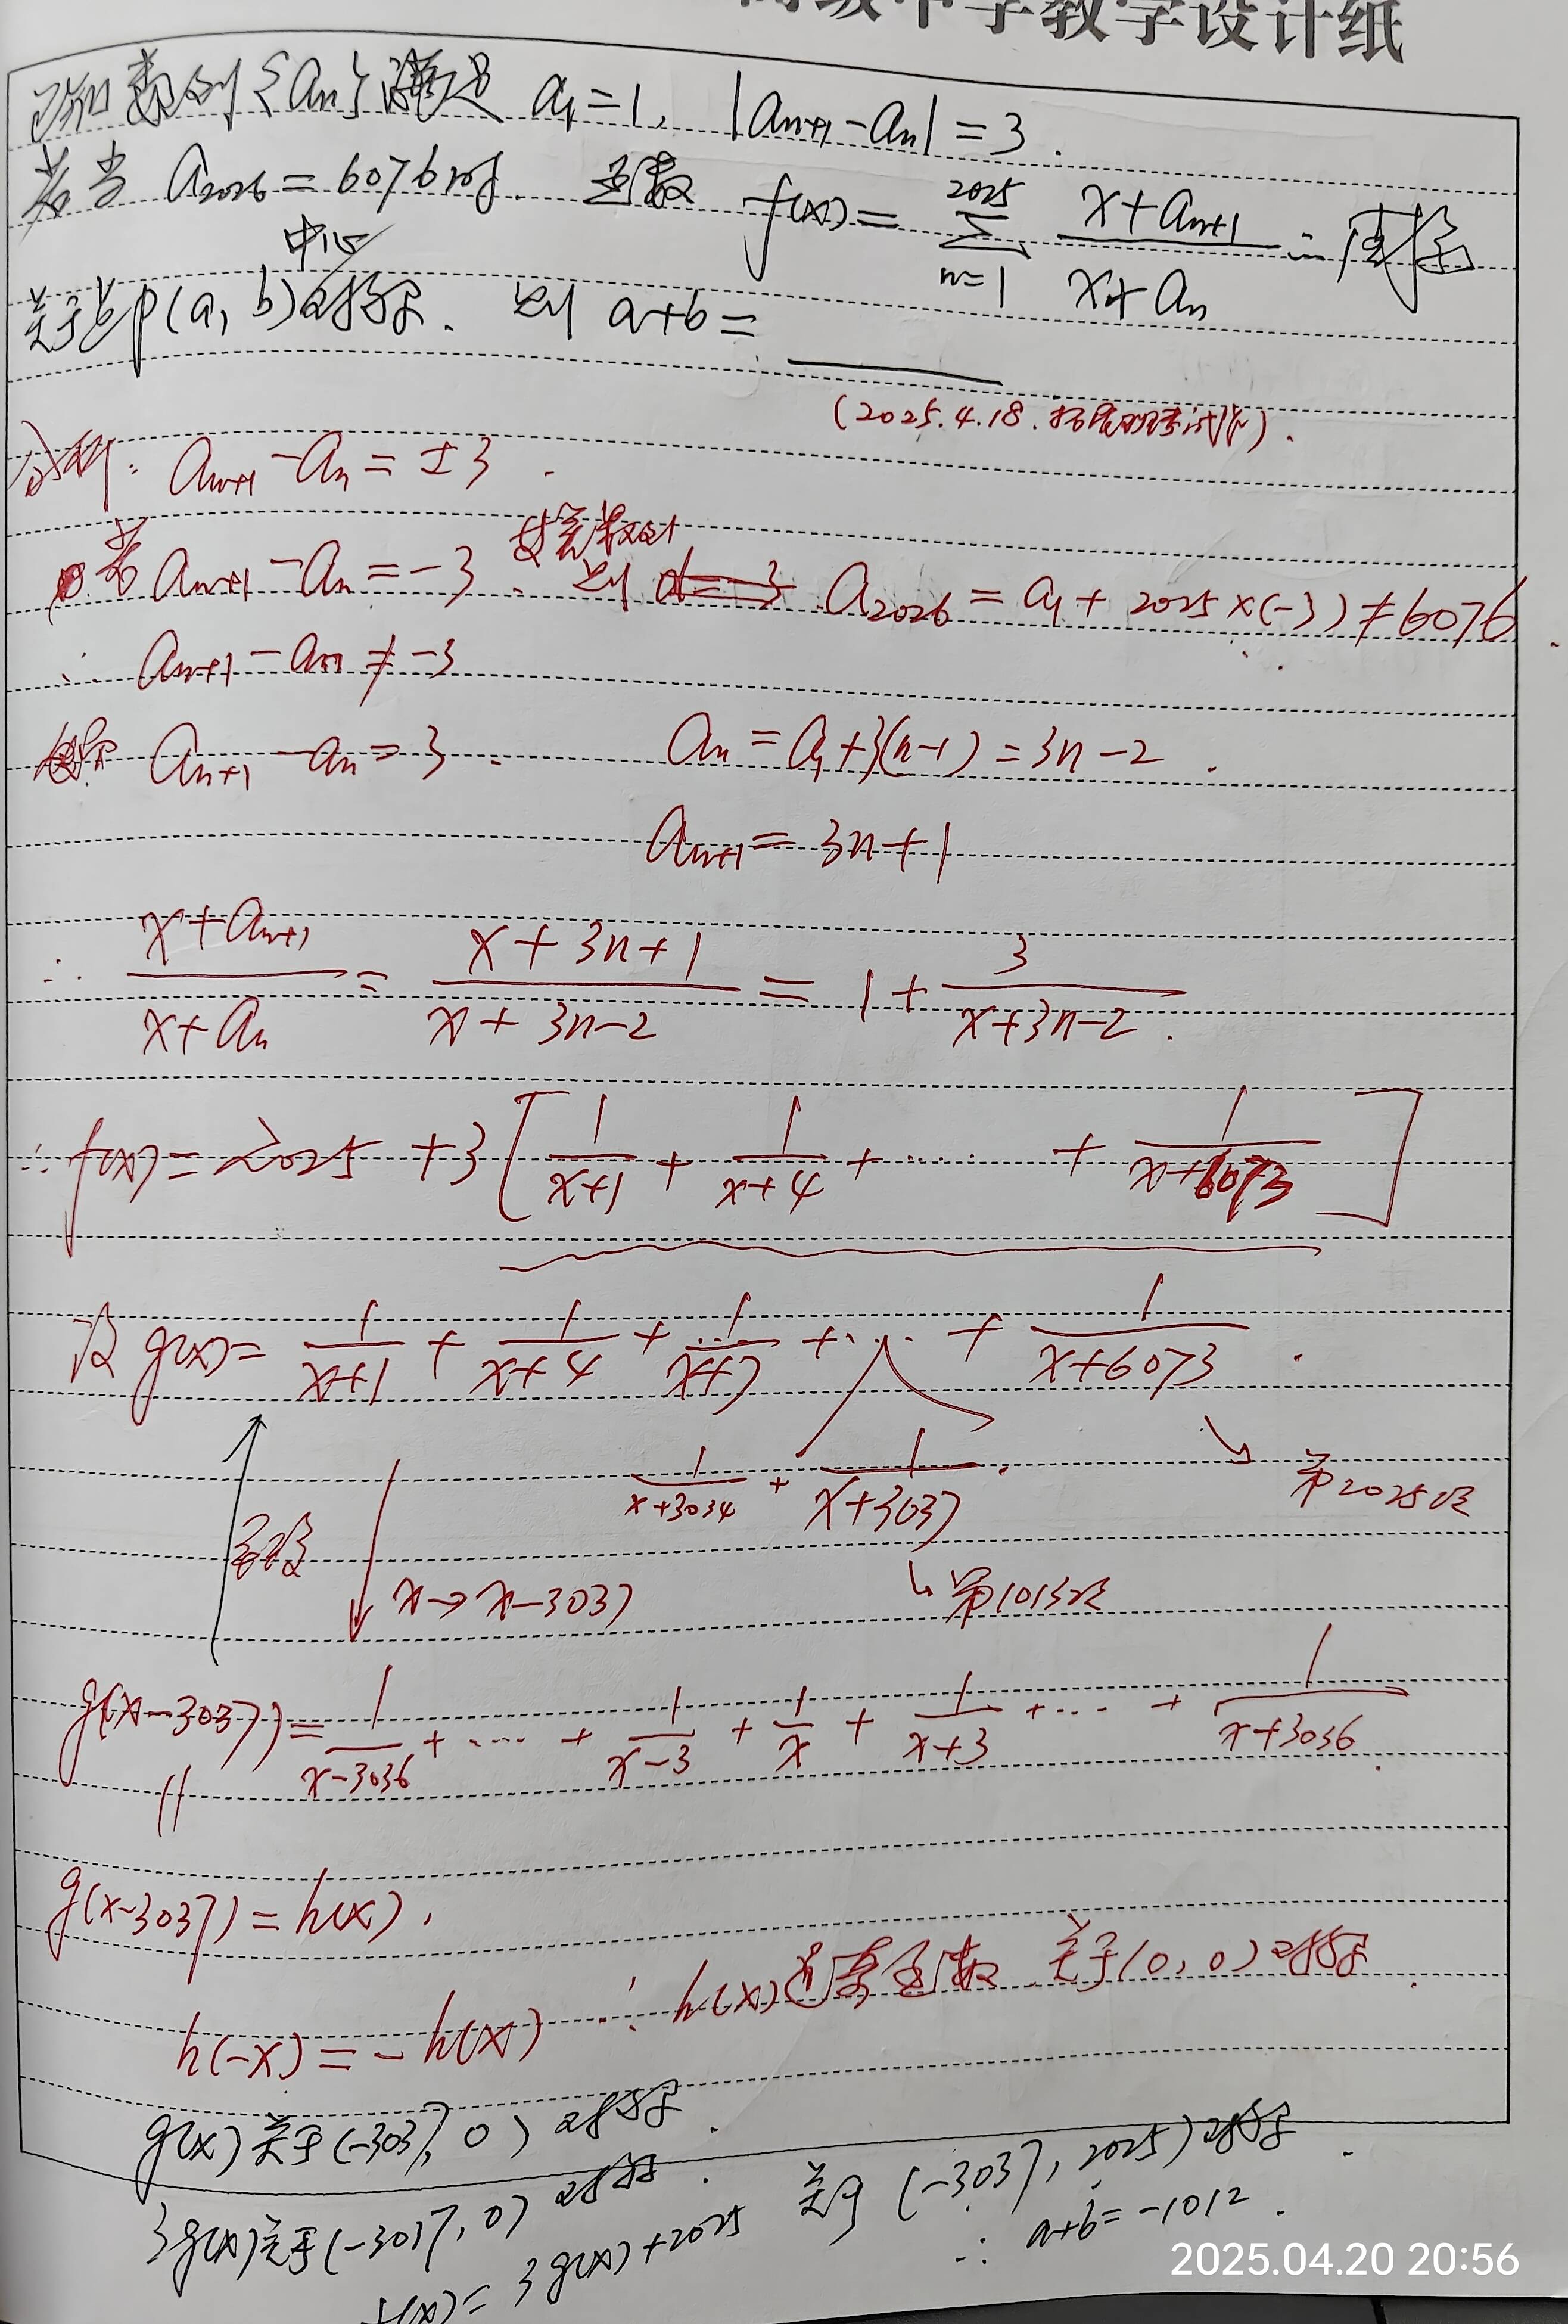 高级中学教学设计纸
已知数列{aₙ}满足 a₁=1, |aₙ₊₁-aₙ|=3.
若当 a₂₀₂₆=6076时. 函数 f(x)=∑_{n=1}^{2025} (x+aₙ₊₁)/(x+aₙ) 的图象
关于点P(a,b)中心对称. 则 a+b=____
(2025.4.18. 试).
分析: aₙ₊₁-aₙ=±3.
若 aₙ₊₁-aₙ=-3. 则 a₂₀₂₆=a₁+2025×(-3)≠6076.
∴ aₙ₊₁-aₙ≠-3
aₙ₊₁-aₙ=3. aₙ=a₁+3(n-1)=3n-2.
aₙ₊₁=3n+1
∴ (x+aₙ₊₁)/(x+aₙ)=(x+3n+1)/(x+3n-2)=1+3/(x+3n-2).
∴ f(x)=2025+3[1/(x+1)+1/(x+4)+……+1/(x+6073)]
设 g(x)=1/(x+1)+1/(x+4)+1/(x+7)+…+1/(x+6073).
1/(x+3034)+1/(x+3037).
第2025项
第1013项
x→x-3037
g(x-3037)=1/(x-3036)+……+1/(x-3)+1/x+1/(x+3)+…+1/(x+3036).
g(x-3037)=h(x).
h(-x)=-h(x) ∴ h(x)是奇函数 关于(0,0)对称.
g(x)关于(-3037,0)对称.
3g(x)关于(-3037,0)对称.
f(x)=3g(x)+2025 关于(-3037,2025)对称.
∴ a+b=-1012.
2025.04.20 20:56